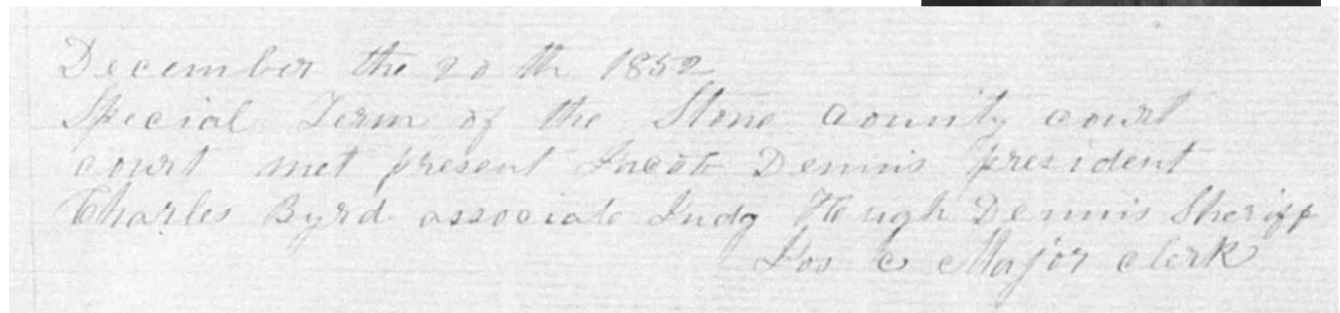 December the 20th 1852
Special Term of the Stone county court
court met present Jacob Dennis president
Charles Byrd associate Judg Hugh Dennis Sheriff
Jos C Major clerk